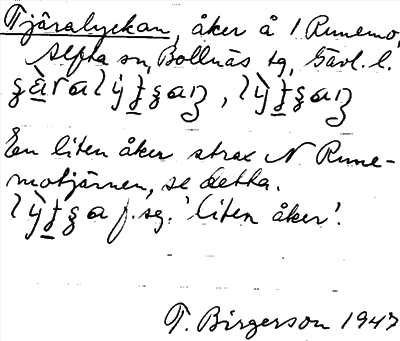 Tjäralyckan, åker å 1 Runemo,
Alfta sn, Bollnäs tg, Gävl. l.
En liten åker strax N Rune-
motjärnen, se detta.
f. sg. 'liten åker'.
T. Birgerson 1947